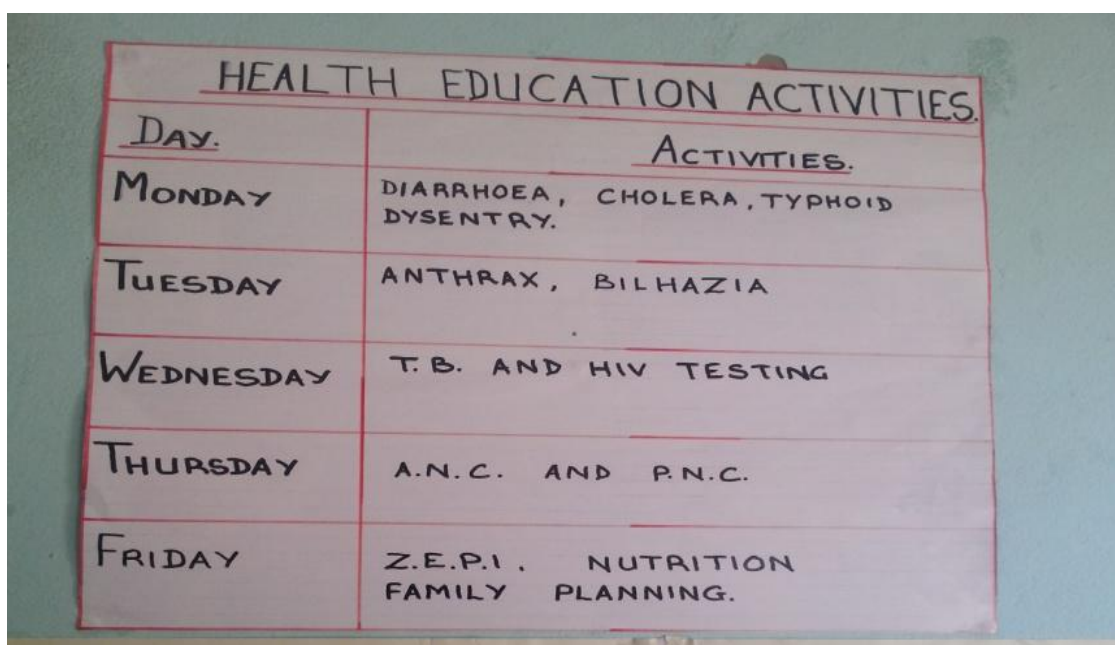 HEALTH EDUCATION ACTIVITIES.
DAY. ACTIVITIES.
MONDAY DIARRHOEA, CHOLERA, TYPHOID
DYSENTRY.
TUESDAY ANTHRAX, BILHAZIA
WEDNESDAY T.B. AND HIV TESTING
THURSDAY A.N.C. AND P.N.C.
FRIDAY Z.E.P.I. NUTRITION
FAMILY PLANNING.